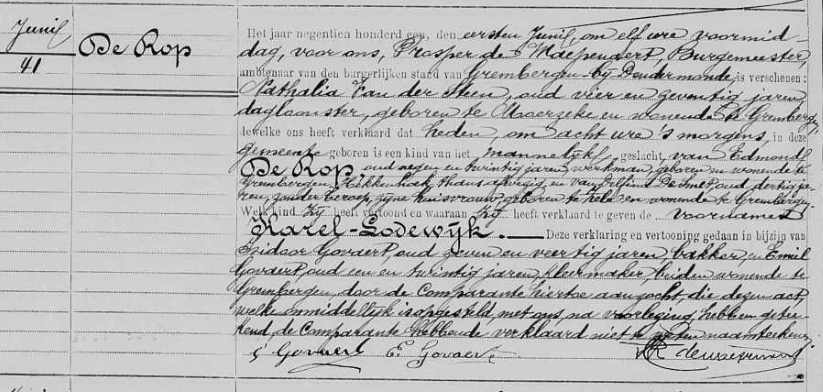 Junij
41
De Rop
Het jaar negentien honderd een, den eersten Junij, om elf ure voormid-
dag, voor ons, Prosper de Maependaert, Burgemeester,
ambtenaar van den burgerlijken stand van Grembergen-bij-Dendermonde, is verschenen:
Nathalia Van der Steen, oud vier en zeventig jaren,
dagloonster, geboren te Moerzeke en wonende te Grembergen
dewelke ons heeft verklaard dat heden, om acht ure 's morgens, in deze
gemeente geboren is een kind van het mannelijk geslacht, van Edmond
De Rop, oud negen en twintig jaren, werkman, geboren en wonende te
Grembergen, thans afwezig en van Delfina De Smet, oud dertig ja-
ren, zonder beroep, zijne huisvrouw, geboren te en wonende te Grembergen.
Welk kind zij heeft vertoond en waaraan zij heeft verklaard te geven de voornamen
Karel-Lodewijk. Deze verklaring en vertooning gedaan in bijzijn van
Isidoor Govaert, oud zeven en veertig jaren, bakker, en Emiel
Govaert, oud een en twintig jaren, kleermaker, beiden wonende te
Grembergen, door de Comparante hiertoe aanzocht, die dezen act,
welke onmiddellijk is opgesteld, met ons, na voorlezing hebben getee-
kend, de Comparante hebbende verklaard niet te weten naamteekenen.
Govaert E. Govaert